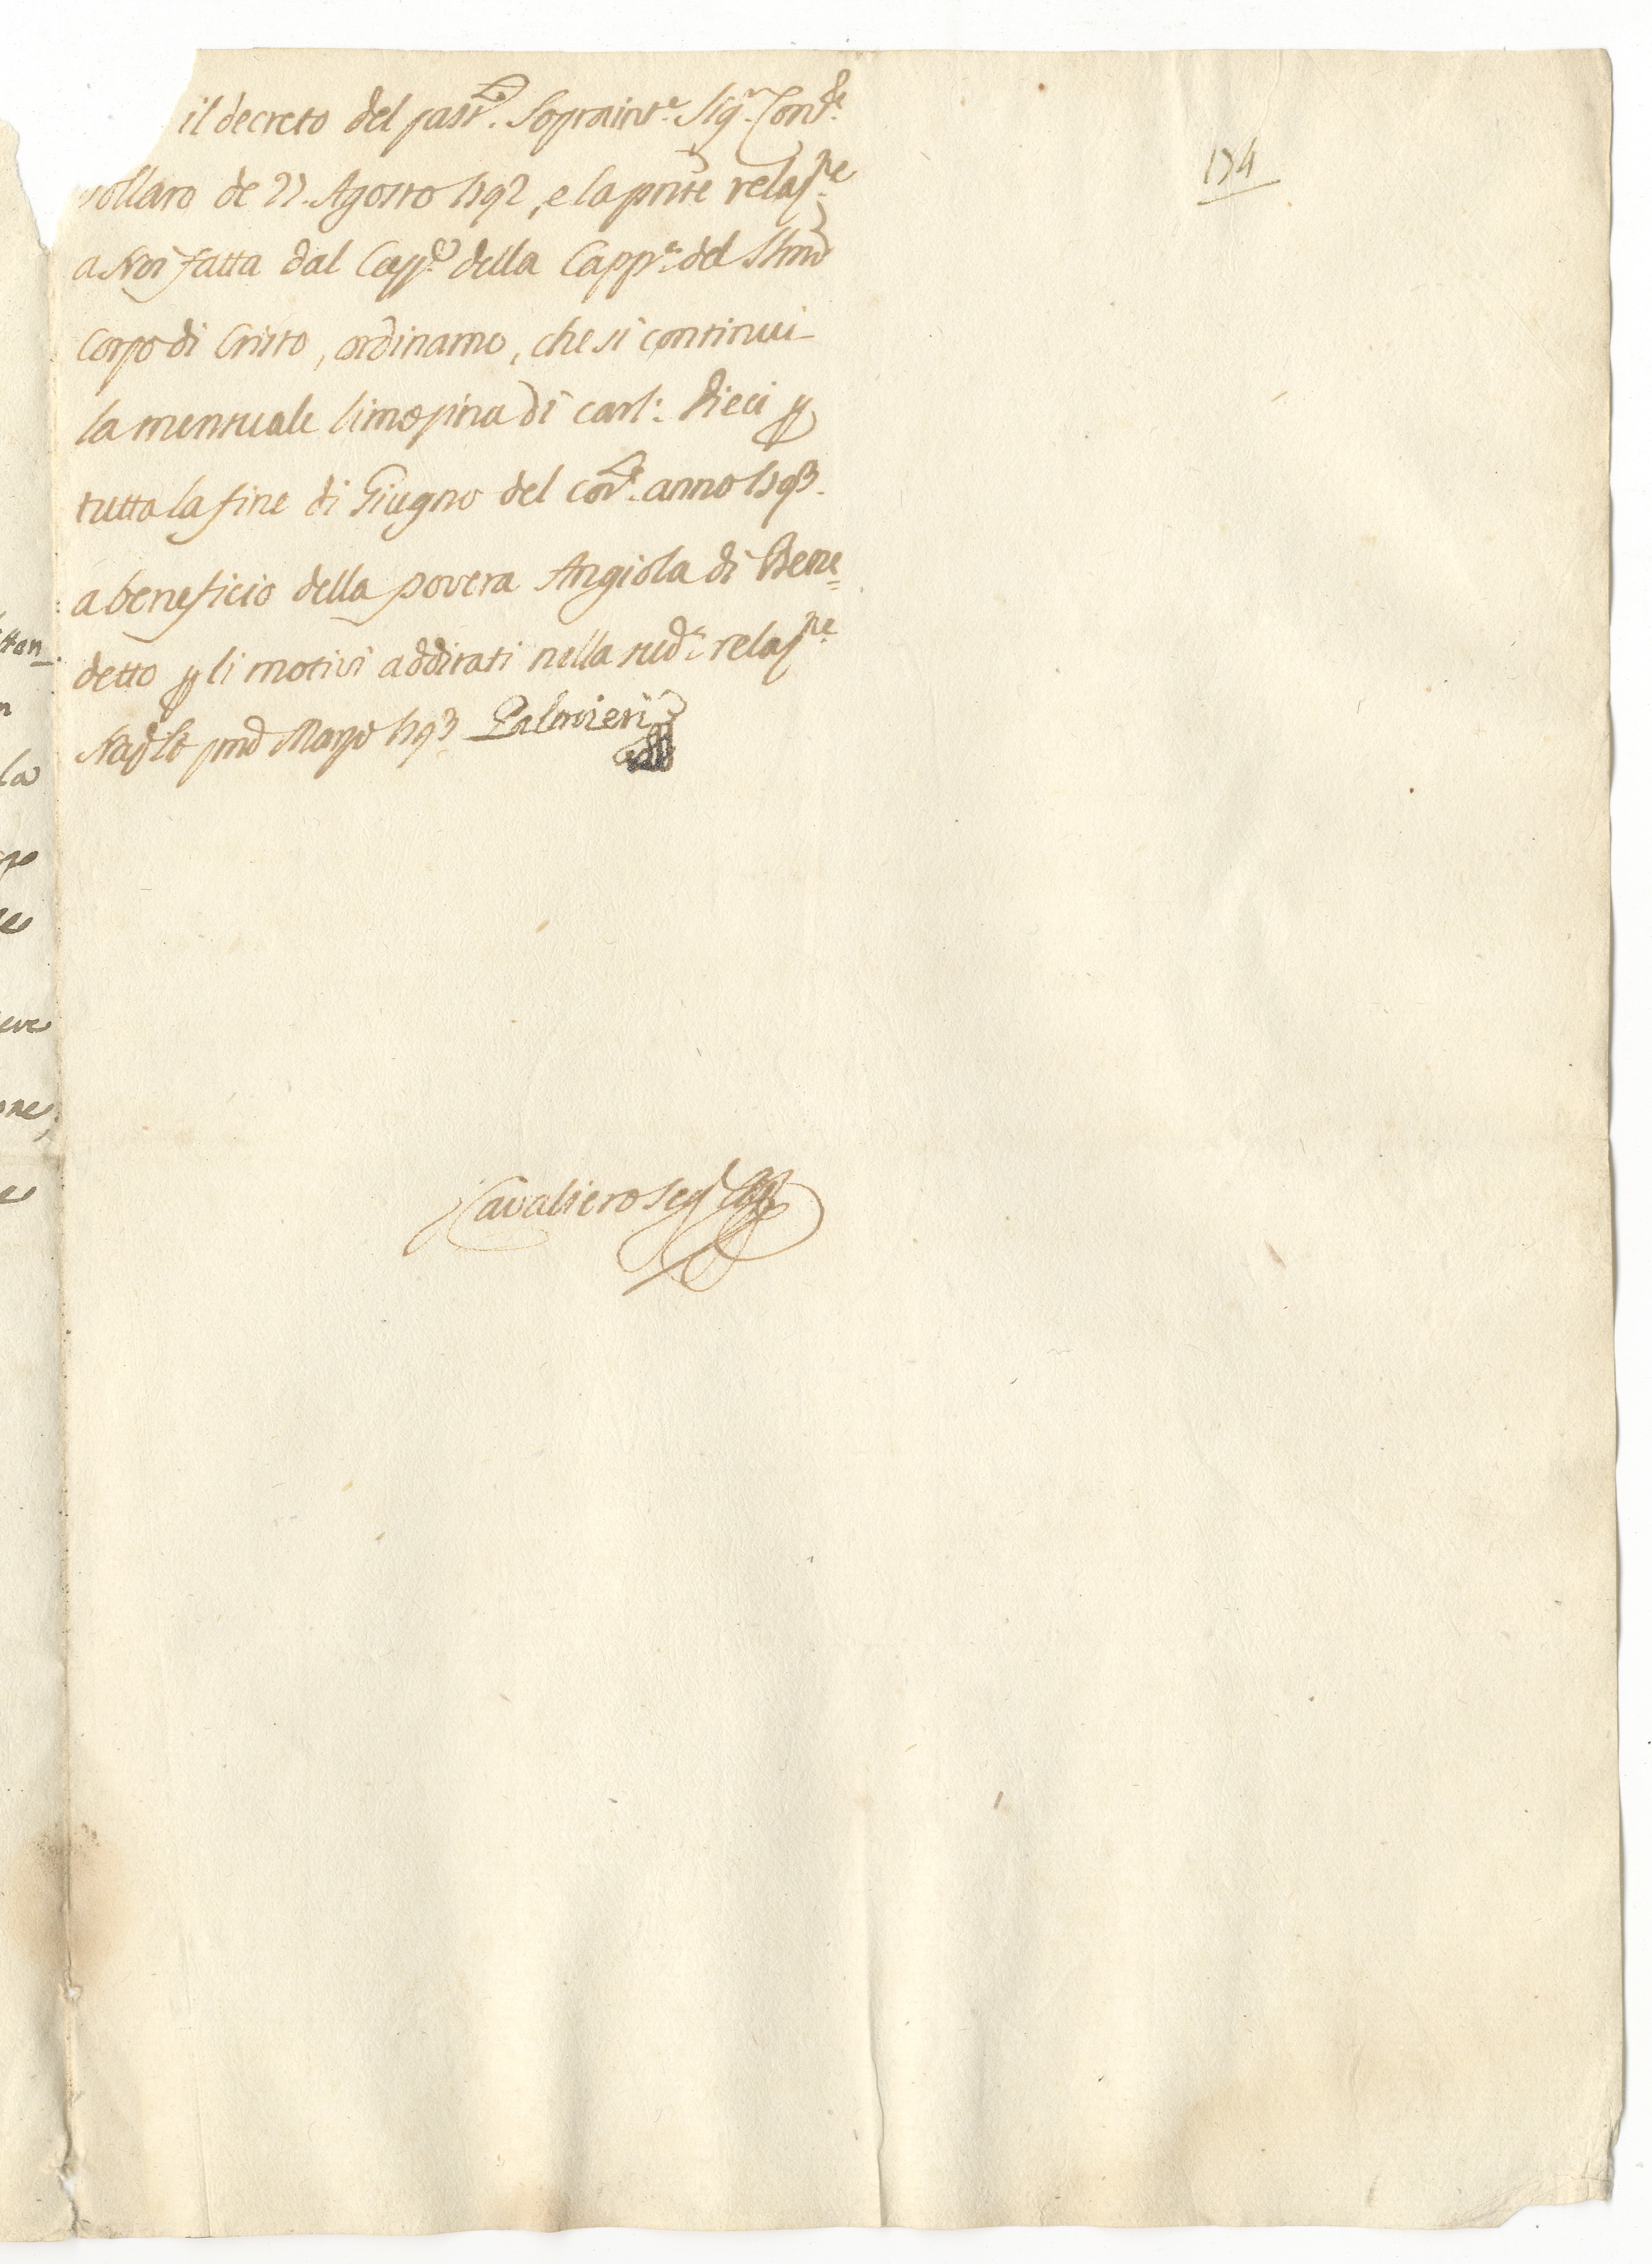 174
il decreto del pass.to Sopraint.e Sig.r Cons.re
vollaro de 27. Agosto 1792, e la pnte relaz.ne
a Noi fatta dal Capp.o della Capp.a del SSmo
Corpo di Cristo, ordinamo, che si continui
la mensuale limosina di carl: dieci p
tutto la fine di Giugno del cor.te anno 1793.
a beneficio della povera Angiola di Bene=
detto p li motivi additati nella sud.a relaz.ne
Nap.li pmo Marzo 1793 Palmieri
Cavaliero Seg.